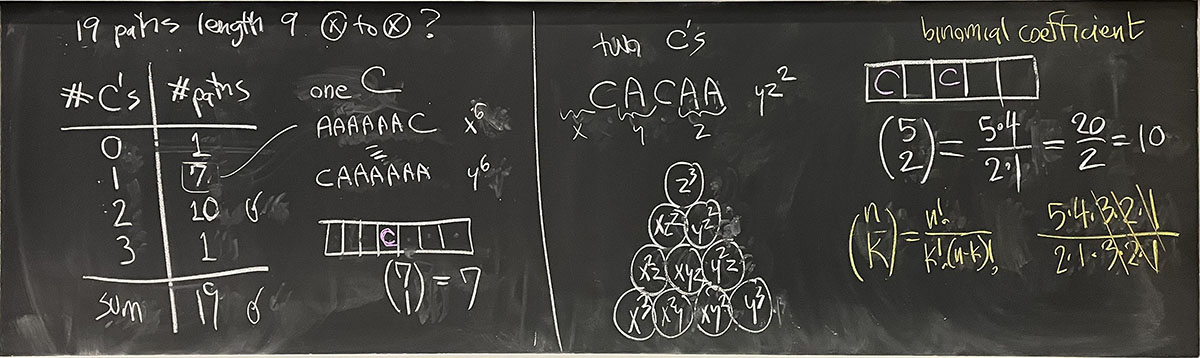 19 paths length 9 ⓧ to ⓧ ?
#C's #paths
0 1
1 7
2 10
3 1
sum 19
one C
AAAAAAC x⁶
CAAAAAA y⁶
C
(7 1) = 7
two C's
CACAA yz²
x y z
z³
xz² yz²
x²z xyz y²z
x³ x²y xy² y³
binomial coefficient
C C
(5 2) = 5·4 / 2·1 = 20/2 = 10
(n k) = n! / k!(n-k)!
5·4·3·2·1 / 2·1·3·2·1